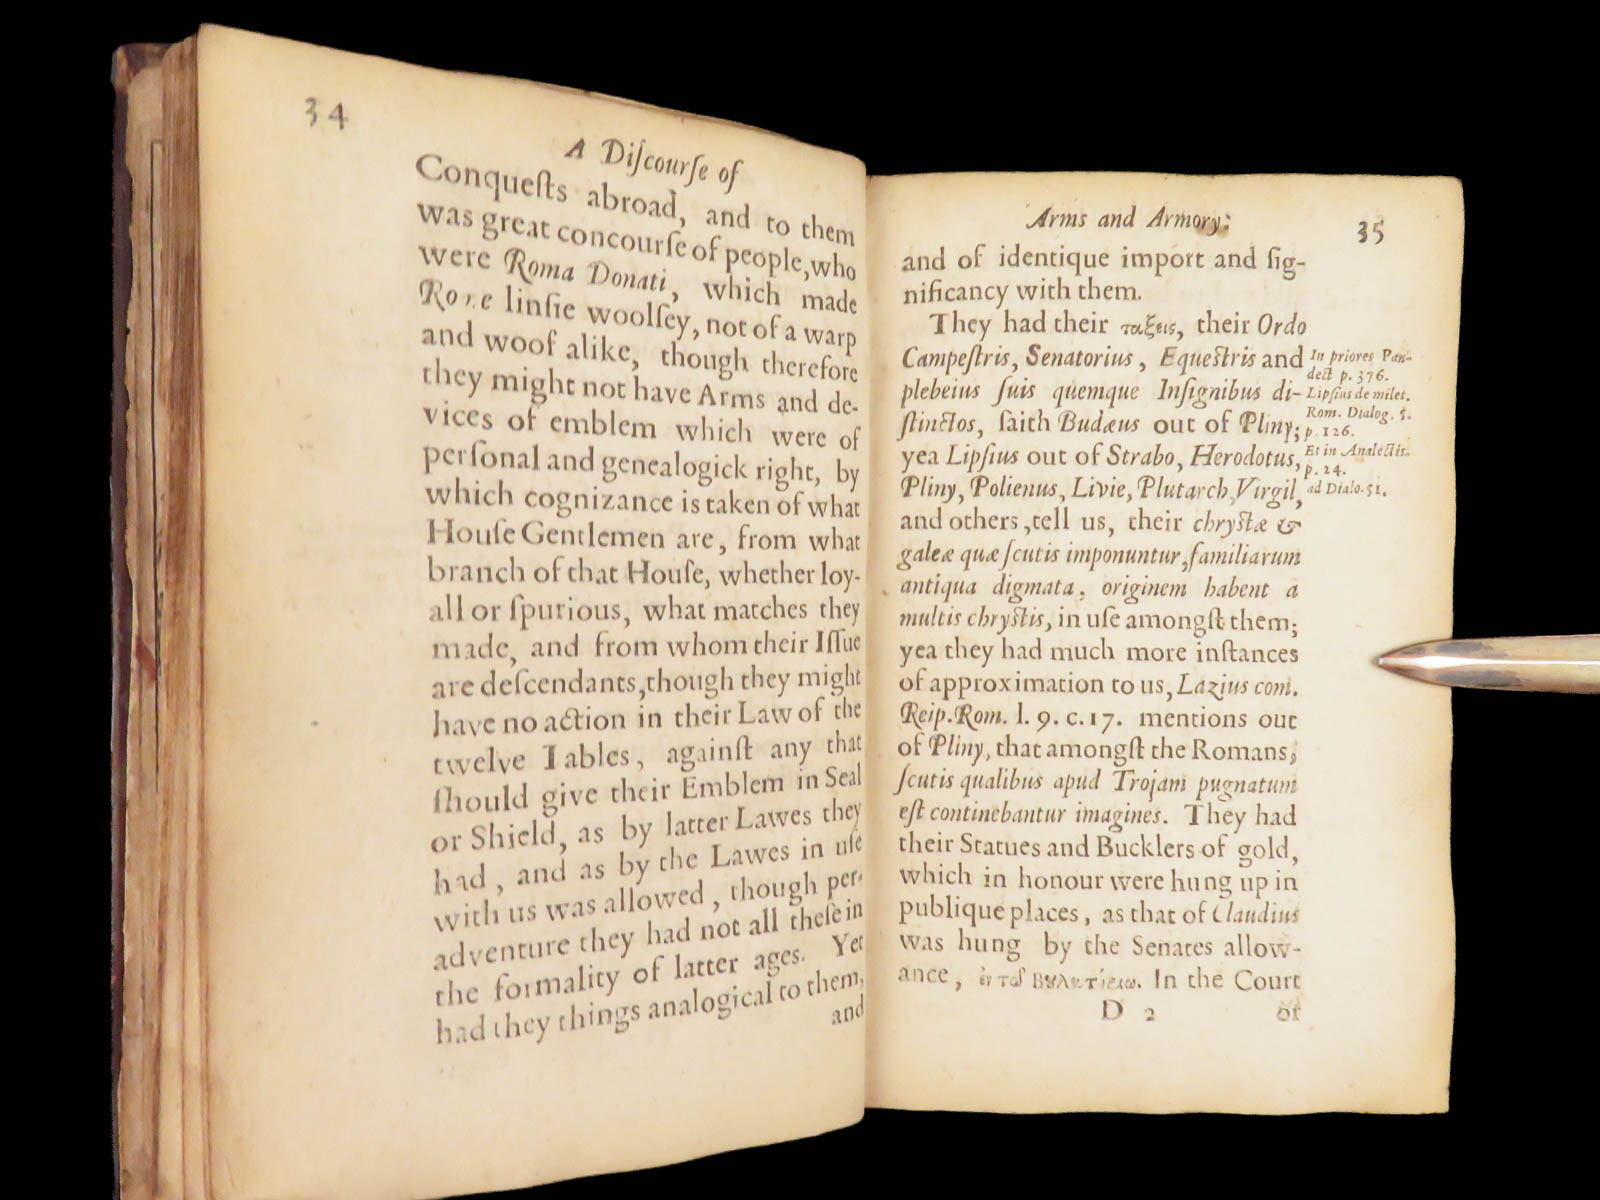 34
A Diſcourſe of
Conqueſts abroad, and to them
was great concourſe of people, who
were Roma Donati, which made
Rome linſie woolſey, not of a warp
and woof alike, though therefore
they might not have Arms and de-
vices of emblem which were of
perſonal and genealogick right, by
which cognizance is taken of what
Houſe Gentlemen are, from what
branch of that Houſe, whether loy-
all or ſpurious, what matches they
made, and from whom their Iſſue
are deſcendants, though they might
have no action in their Law of the
twelve Tables, againſt any that
ſhould give their Emblem in Seal
or Shield, as by latter Lawes they
had, and as by the Lawes in uſe
with us was allowed, though per-
adventure they had not all theſe in
the formality of latter ages. Yet
had they things analogical to them,
and
Arms and Armory:
35
and of identique import and ſig-
nificancy with them.
They had their ταξεις, their Ordo
Campeſtris, Senatorius, Equeſtris and
plebeius ſuis quemque Inſignibus di-
ſtinctos, ſaith Budæus out of Pliny;
yea Lipſius out of Strabo, Herodotus,
Pliny, Polienus, Livie, Plutarch, Virgil,
and others, tell us, their chryſtæ &
galeæ quæ ſcutis imponuntur, familiarum
antiqua digmata, originem habent a
multis chryſtis, in uſe amongſt them;
yea they had much more inſtances
of approximation to us, Lazius com.
Reip. Rom. l. 9. c. 17. mentions out
of Pliny, that amongſt the Romans,
ſcutis qualibus apud Trojam pugnatum
eſt continebantur imagines. They had
their Statues and Bucklers of gold,
which in honour were hung up in
publique places, as that of Claudius
was hung by the Senates allow-
ance, In the Court
D 2
of
In priores Pan-
dect p. 376.
Lipſius de milet.
Rom. Dialog. 5.
p. 126.
Et in Analectis.
p. 24.
ad Dialo. 51.